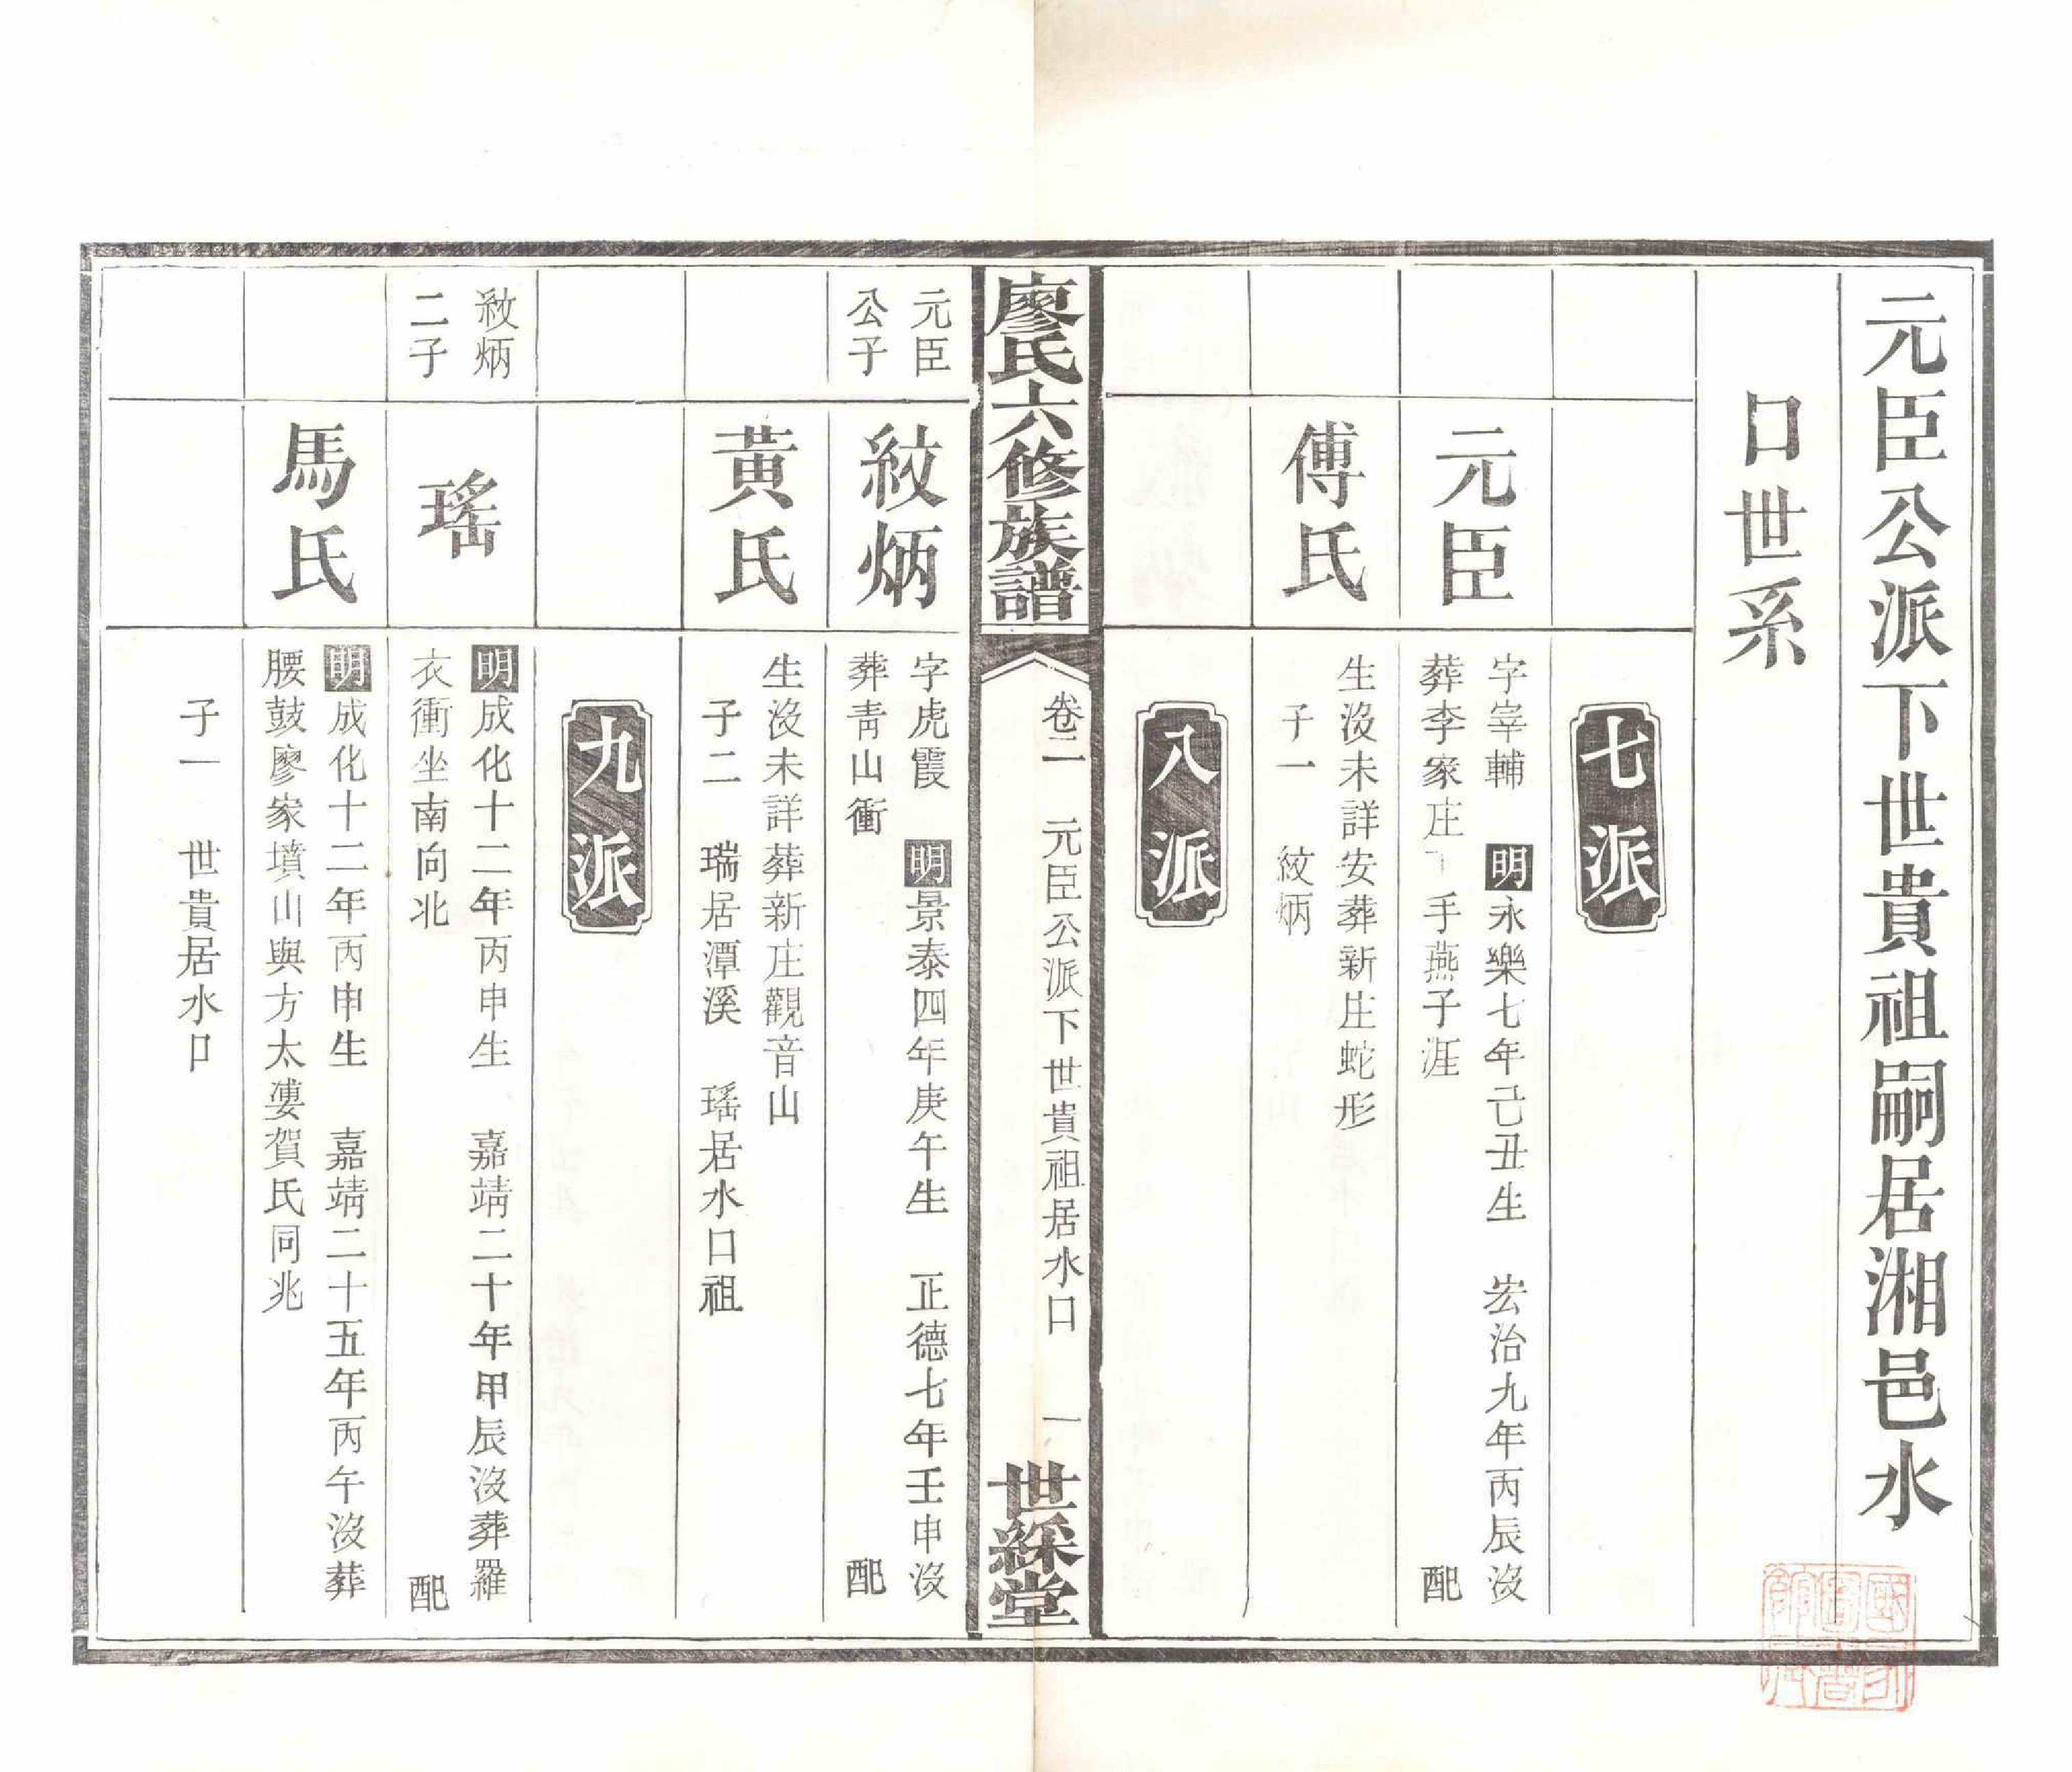 元臣公派下世貴祖嗣居湘邑水
口世系
七派
元臣
字宰輔　明永樂七年己丑生　宏治九年丙辰沒
葬李家庄丁手燕子涯　配
傅氏
生沒未詳安葬新庄蛇形
子一　紋炳
八派
廖氏六修族譜
卷二　元臣公派下世貴祖居水口　一
世綵堂
元臣
公子
紋炳
字虎霞　明景泰四年庚午生　正德七年壬申沒
葬青山衝　配
黃氏
生沒未詳葬新庄觀音山
子二　瑞居潭溪　瑤居水口祖
九派
紋炳
二子
瑤
明成化十二年丙申生　嘉靖二十年甲辰沒葬羅
衣衝坐南向北　配
馬氏
明成化十二年丙申生　嘉靖二十五年丙午沒葬
腰鼓廖家墳山與方太婆賀氏同兆
子一　世貴居水口